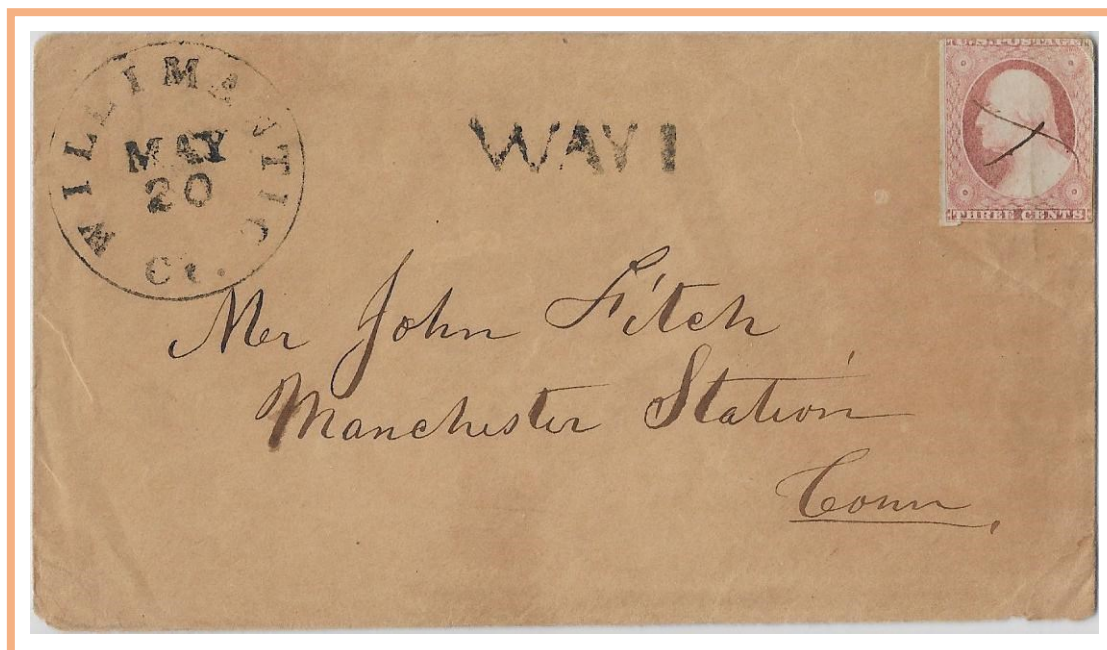 WILLIMANTIC
MAY
20
Ct.
WAY 1
U.S. POSTAGE
THREE CENTS
Mr John Fitch
Manchester Station
Conn